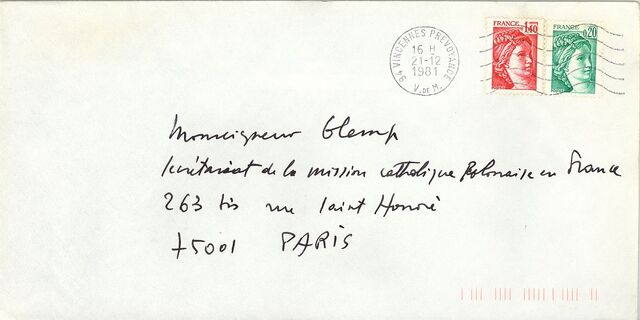 94 VINCENNES PREVOYANCE
16 H
21-12
1981
V. DE M.
FRANCE
1,40
FRANCE
0,20
Monseigneur Glemp
secrétariat de la mission catholique Polonaise en France
263 bis rue Saint Honoré
75001 PARIS